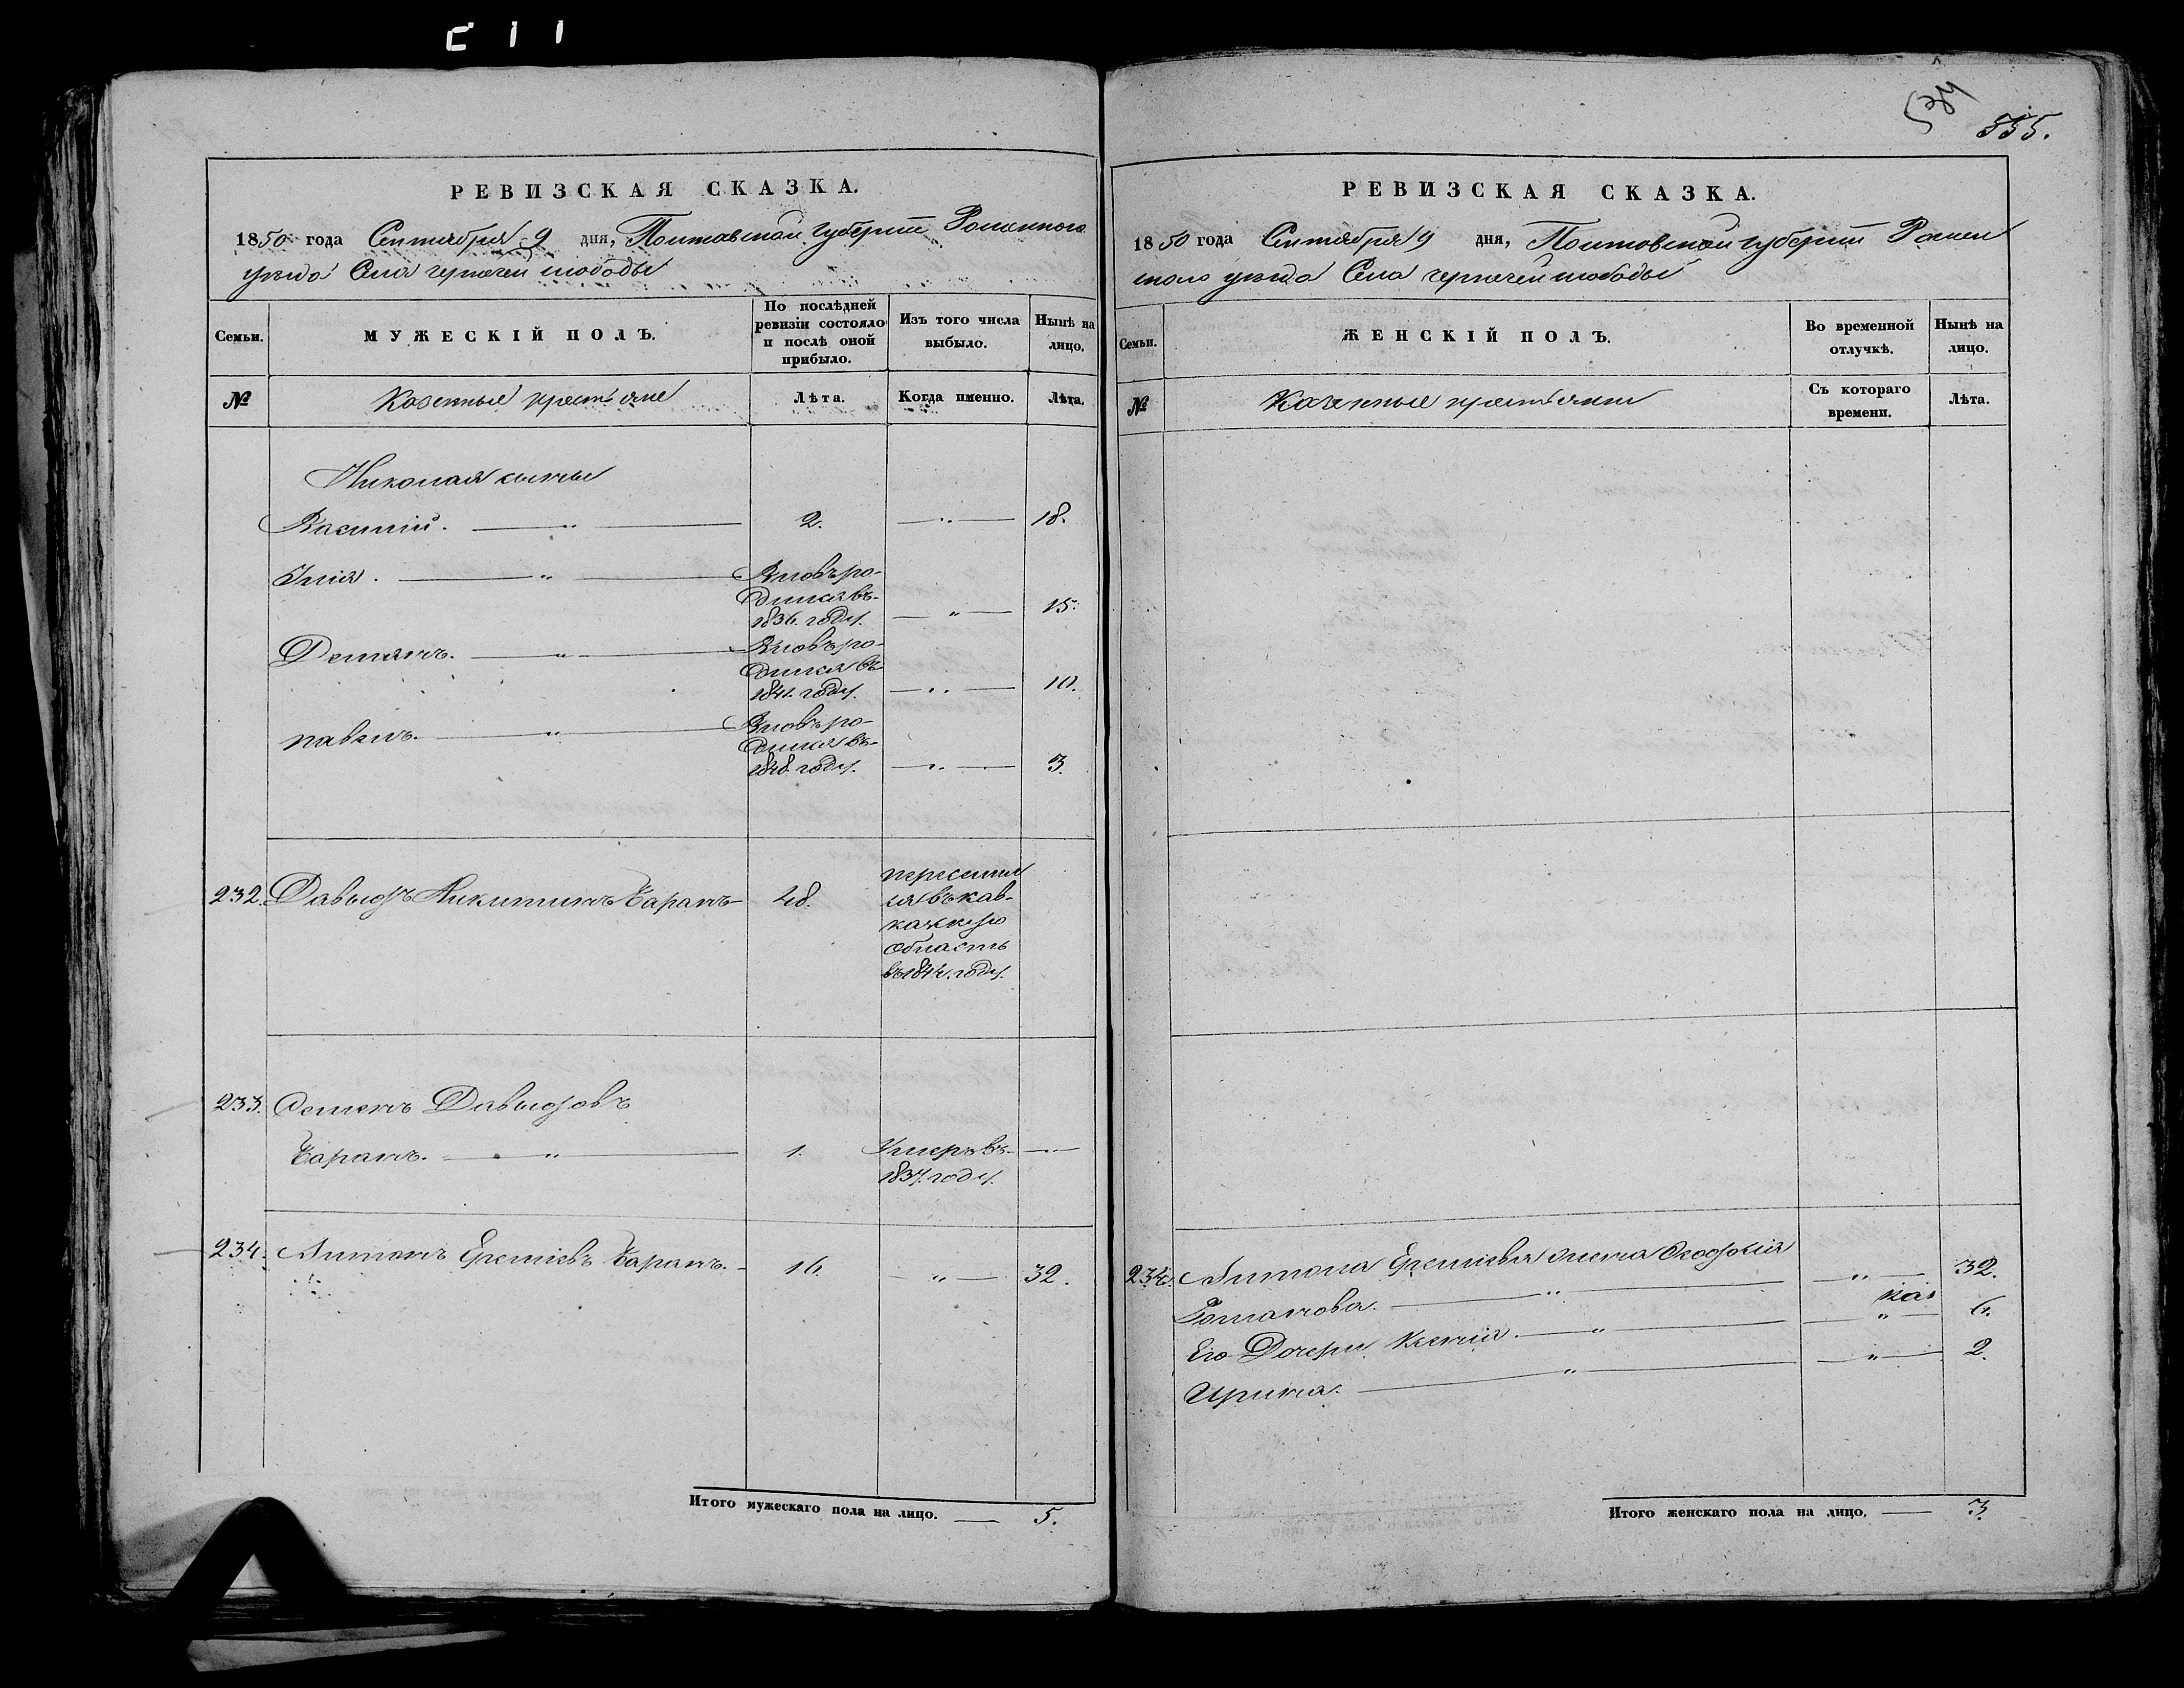 534
535.
РЕВИЗСКАЯ СКАЗКА.
1850 года Сентября 9 дня, Полтавской губернии Роменского
уезда Села чернечей слободы
Семьи.
МУЖЕСКІЙ ПОЛЪ.
По послѣдней
ревизіи состояло
и послѣ оной
прибыло.
Изъ того числа
выбыло.
Нынѣ на
лицо.
№
Казенные крестьяне
Лѣта.
Когда именно.
Лѣта.
Николая сыны
Василий. — „ — 2. — „ — 18.
Илія. — „ — Вновь ро-
дился въ
1836. году. — „ — 15.
Демянъ. — „ — Вновь ро-
дился въ
1841. году. — „ — 10.
павелъ. — „ — Вновь ро-
дился въ
1848. году. — „ — 3.
232. Давыдъ Никитинъ Баранъ 48.
переселил
ся въ кав-
казскую
область
въ 1844. году.
233. Семенъ Давыдовъ
Баранъ. — „ — 1. Умеръ въ
1837. году.
234. Антонъ Еремѣевъ Баранъ. 16. — „ — 32.
Итого мужескаго пола на лицо. — 5.
РЕВИЗСКАЯ СКАЗКА.
1850 года Сентября 9 дня, Полтовской губернии Ромен
ского уезда Села чернечей слободы
Семьи.
ЖЕНСКІЙ ПОЛЪ.
Во временной
отлучкѣ.
Нынѣ на
лицо.
№
Казенные крестьянки
Съ котораго
времени.
Лѣта.
234. Антона Еремѣева жена Феодосія
Романова. — „ — „ — 32.
Его Дочери Ксенія. — „ — „ — 6.
Ирина. — „ — „ — 2.
Итого женскаго пола на лицо. — 3.